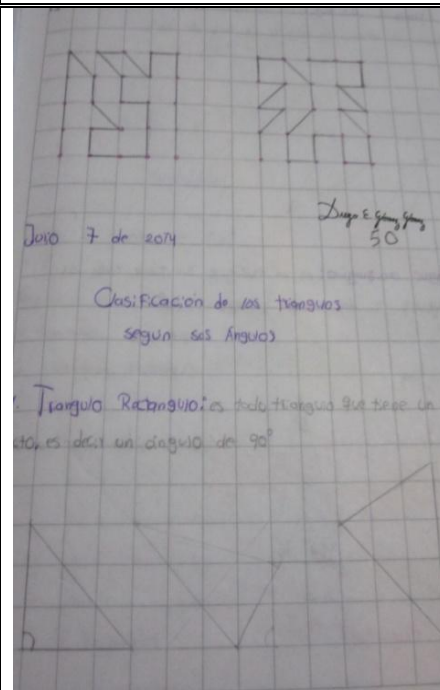 Diego E. Gómez Gómez
50
Julio 7 de 2014
Clasificación de los triangulos
según sus Ángulos
1. Triangulo Rectangulo: es todo triangulo que tiene un
cto, es decir un ángulo de 90°